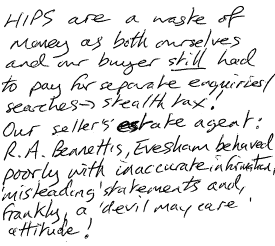 HIPS are a waste of
money as both ourselves
and our buyer still had
to pay for separate enquiries/
searches → stealth tax!
Our seller's estate agent:
R.A. Bennettis, Evesham behaved
poorly with inaccurate information,
misleading statements and,
frankly, a 'devil may care'
attitude!